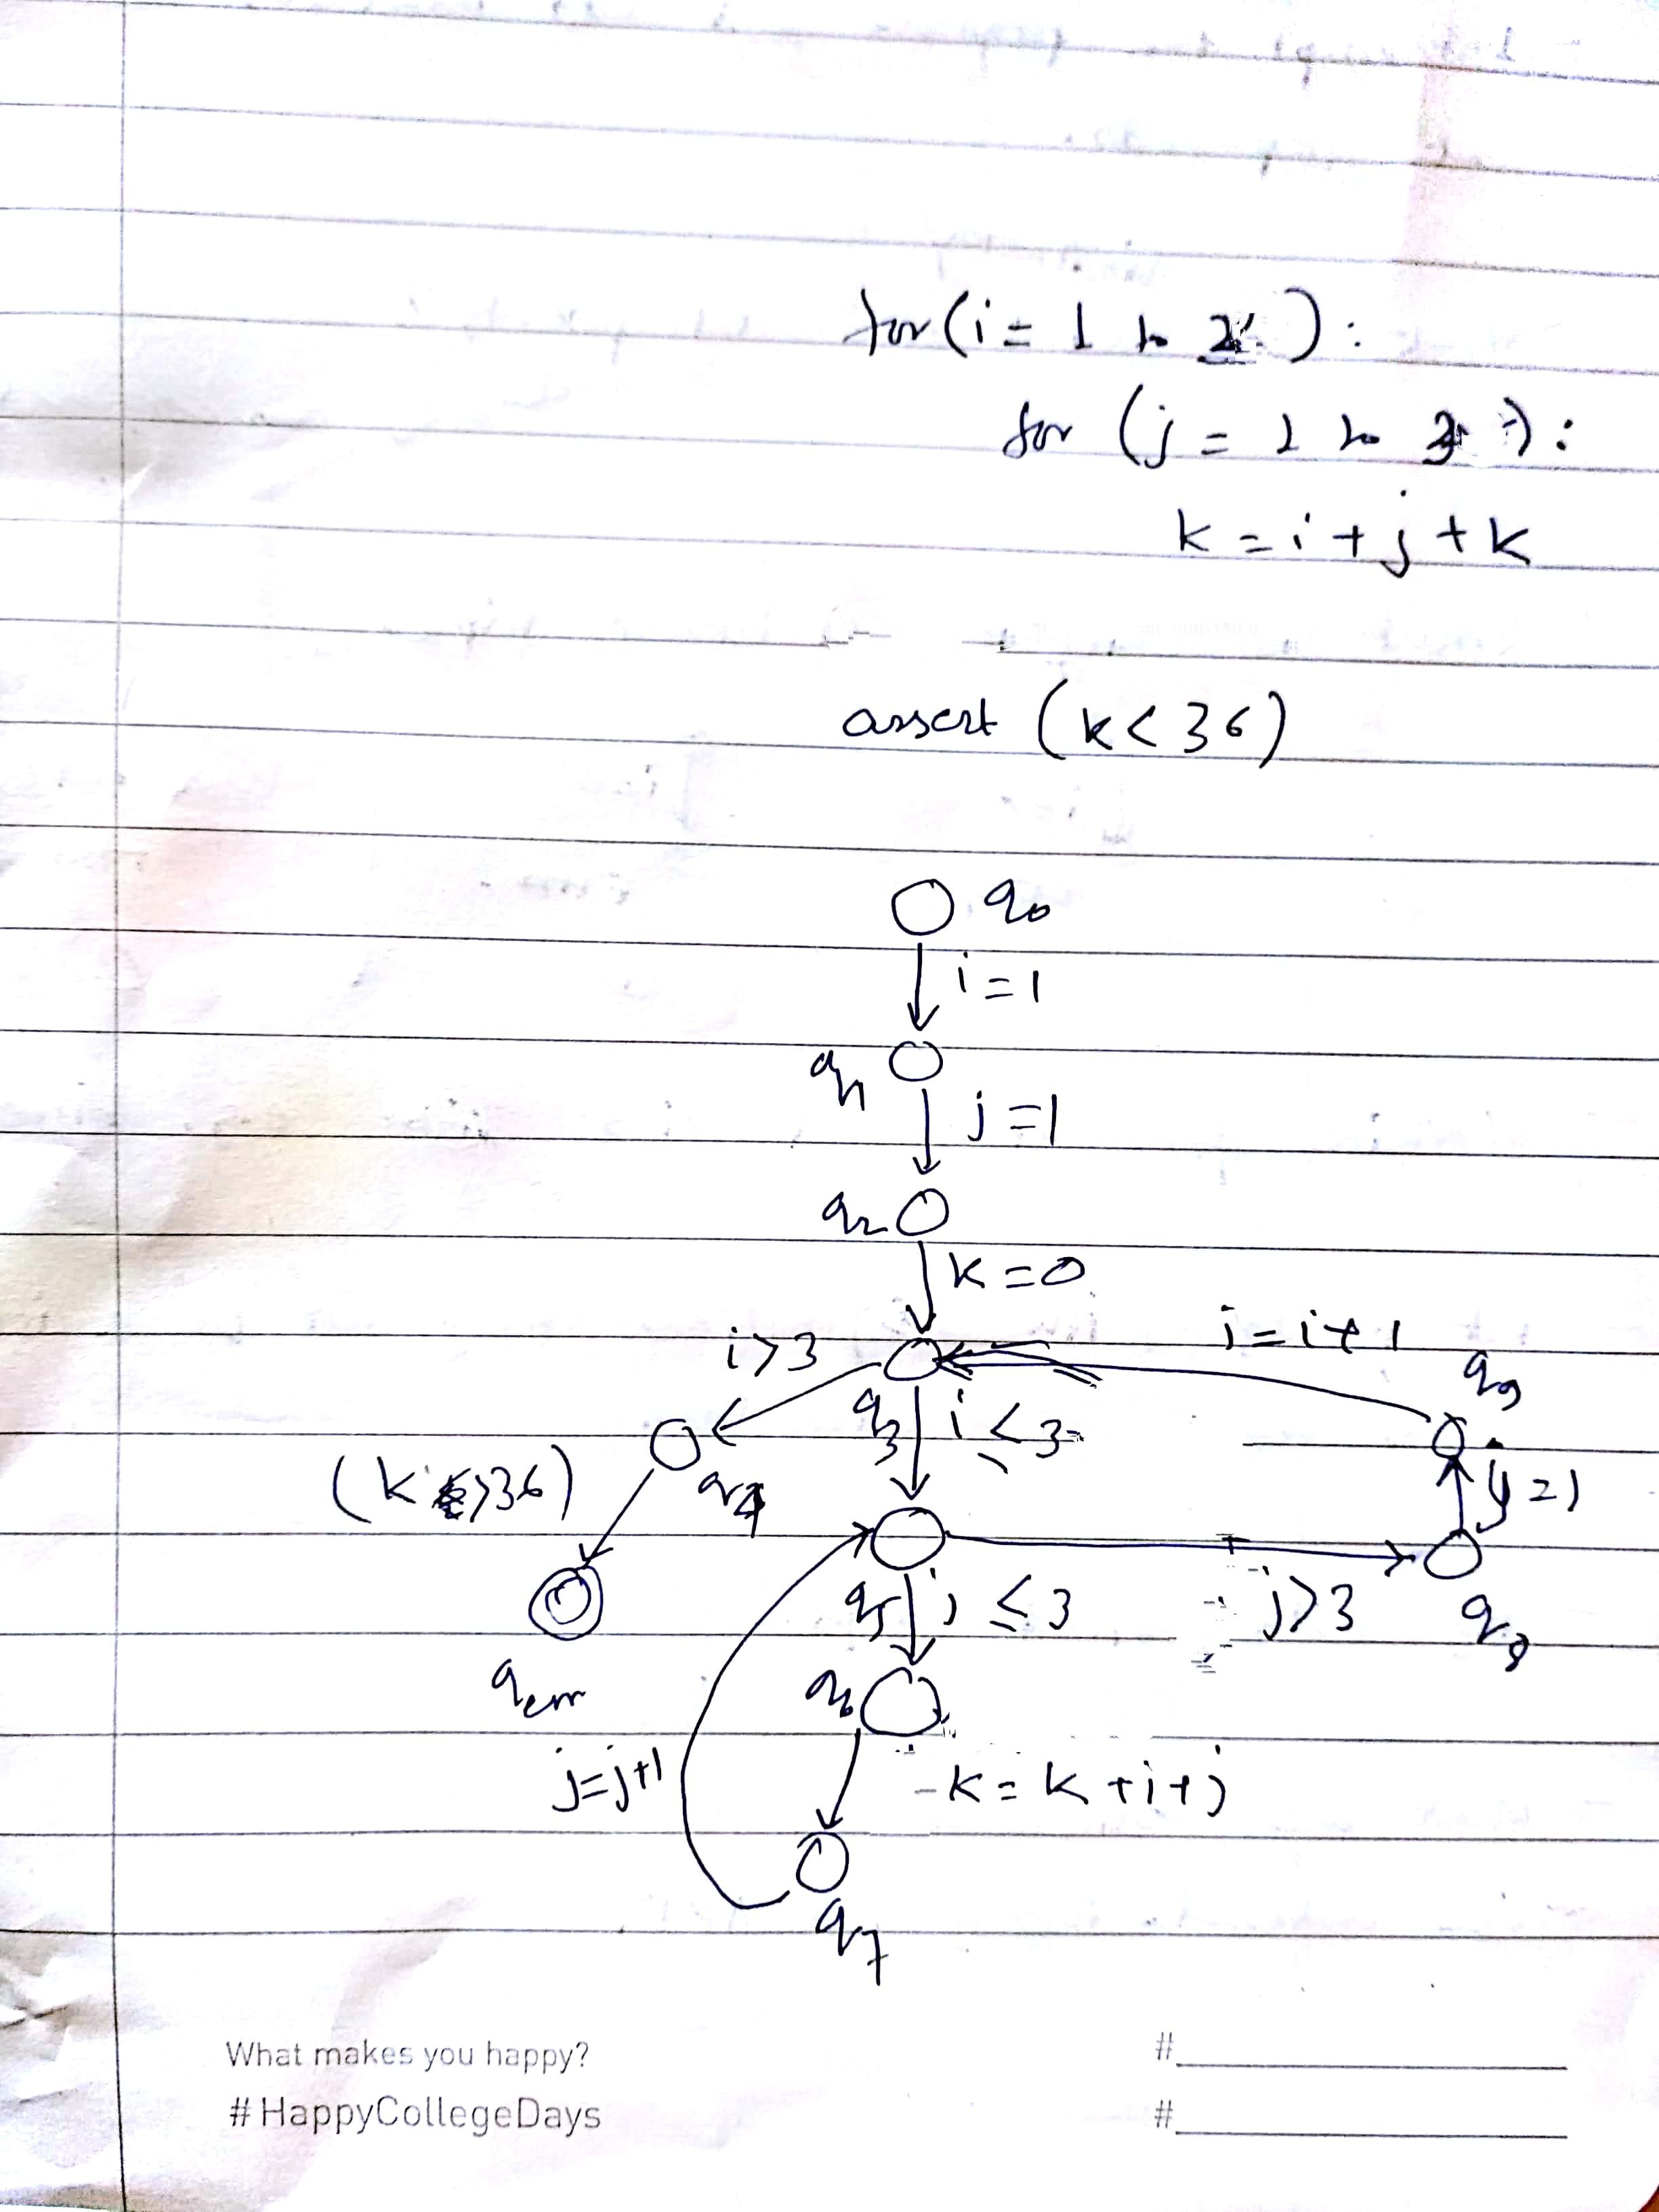 for (i = 1 to ):
for (j = 1 to 3):
k = i + j + k
assert (k < 36)
q0
i = 1
q1
j = 1
q2
k = 0
i > 3
i = i + 1
q3
i ≤ 3
q9
(k > 36)
q4
j = 1
q5
j ≤ 3
j > 3
q8
qerr
q6
j = j + 1
k = k + i + j
q7
What makes you happy?
#
# HappyCollegeDays
#